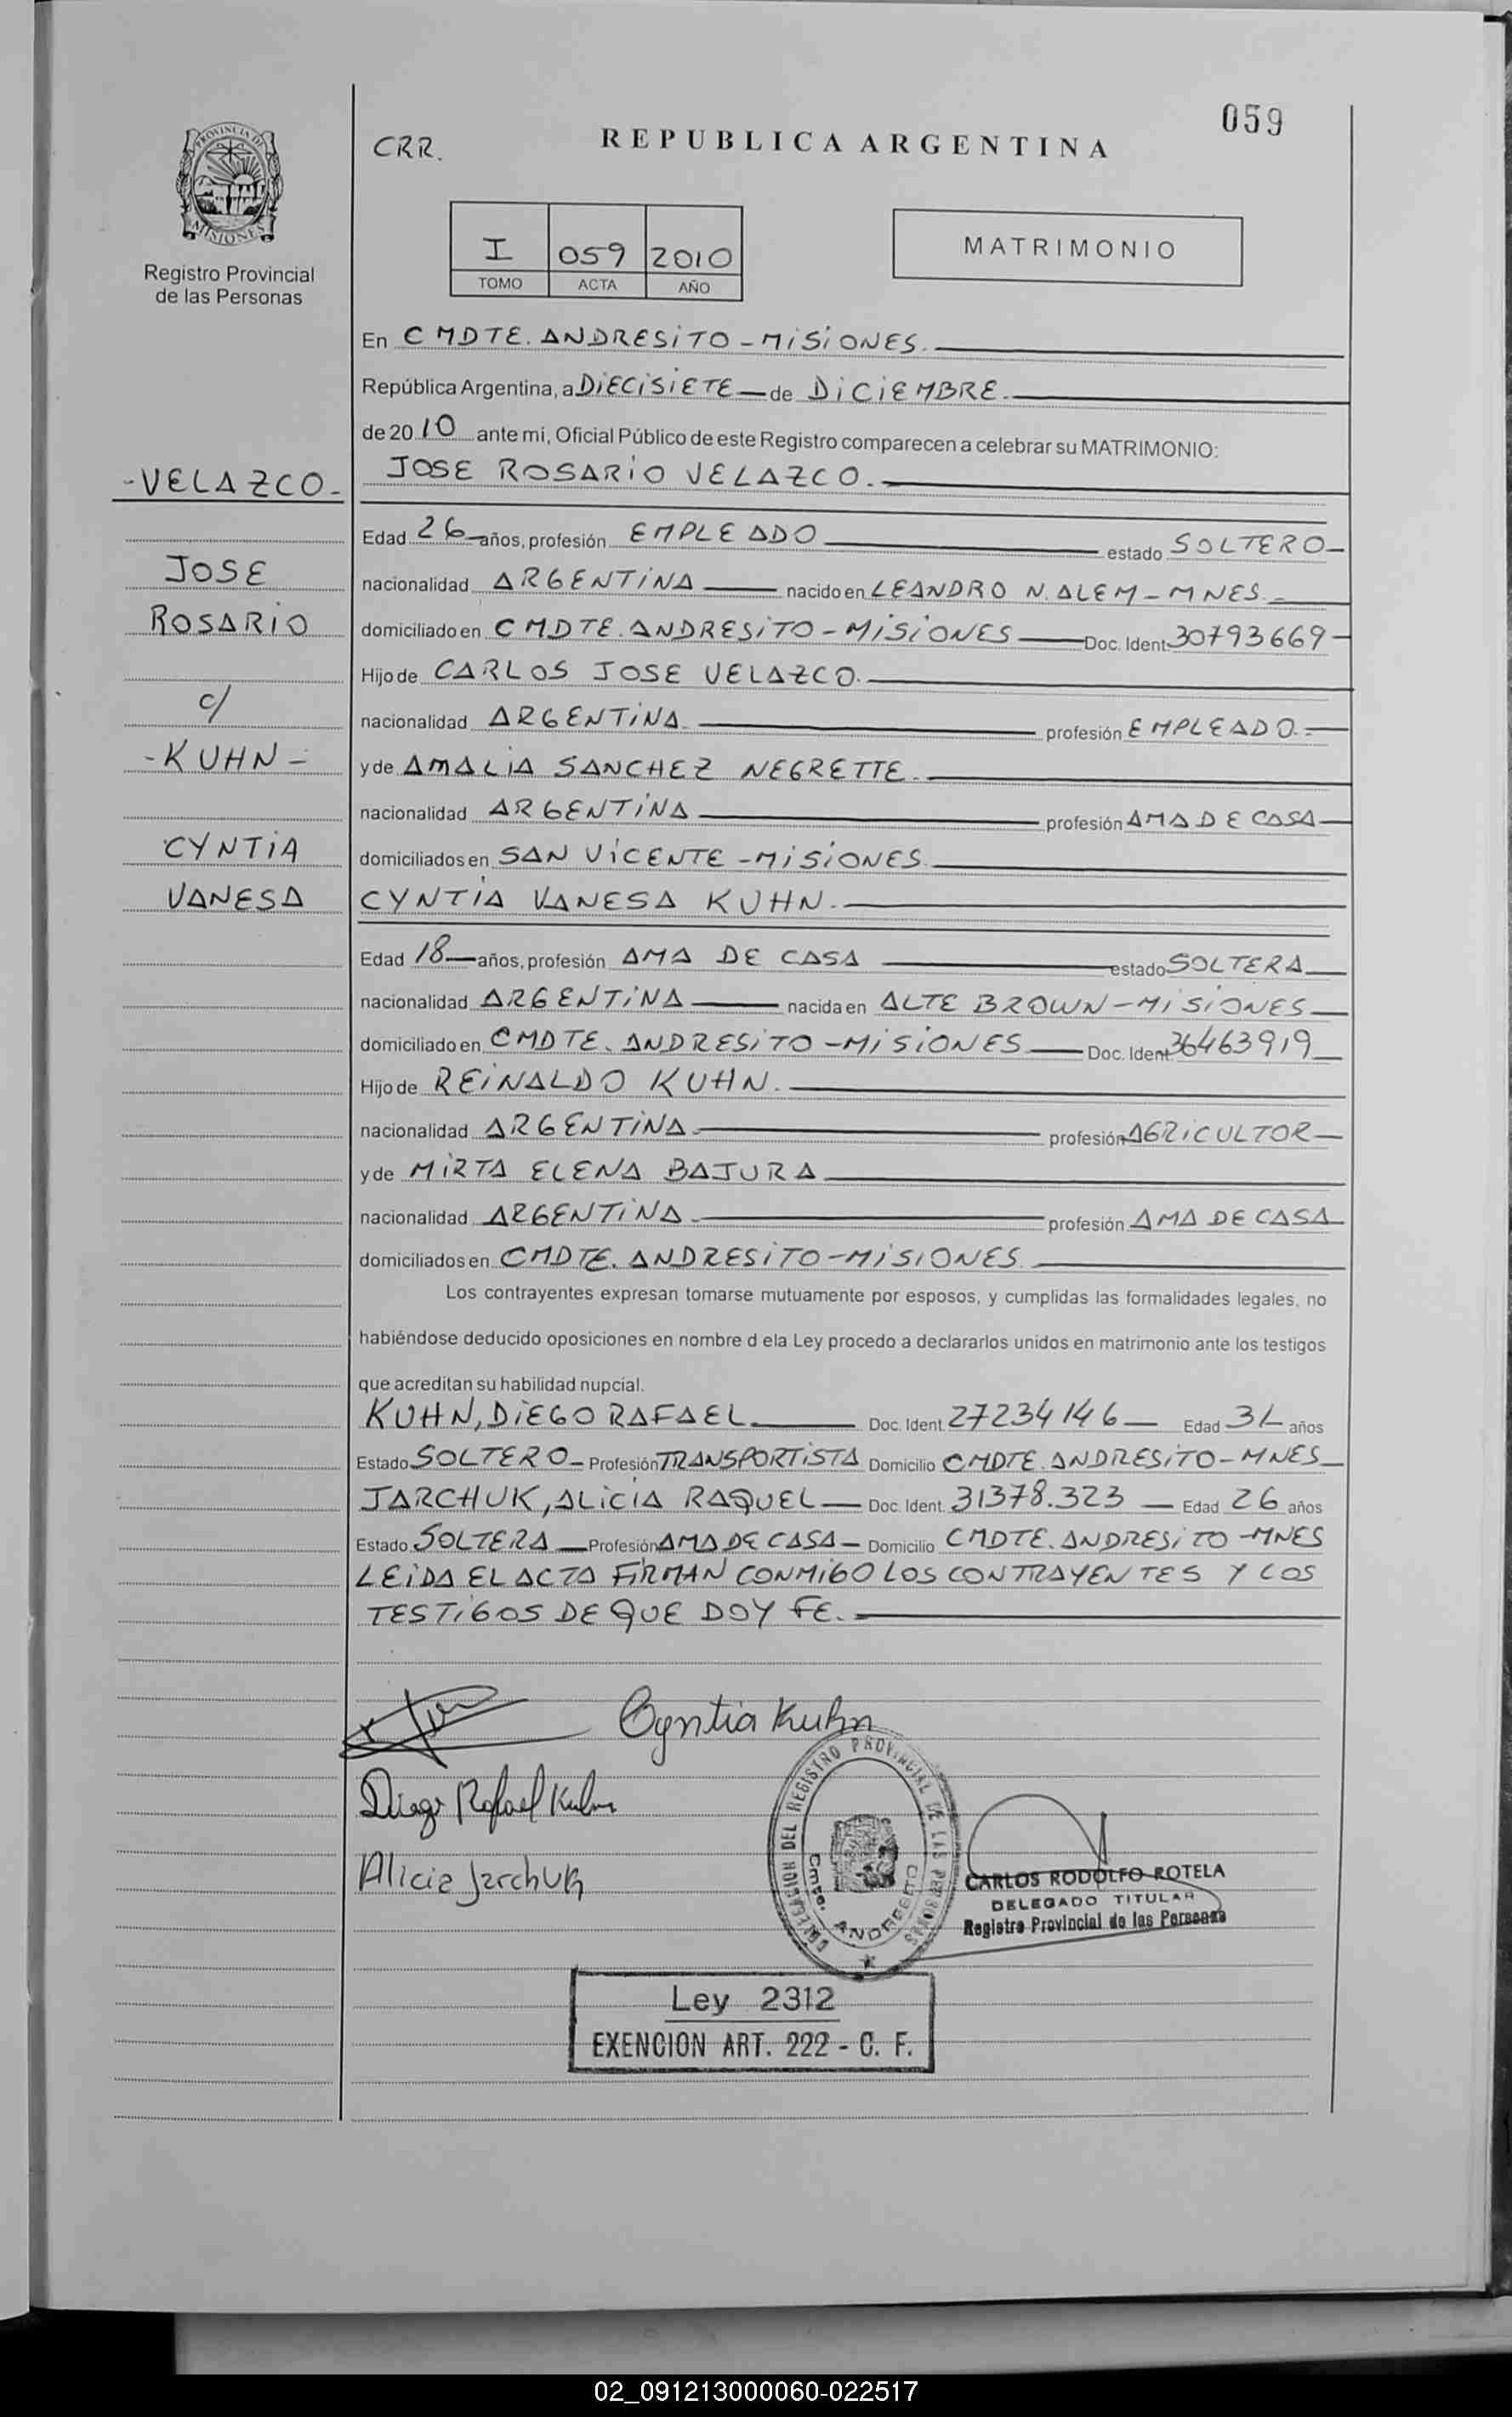 059
CRR.
REPUBLICA ARGENTINA
PROVINCIA DE
MISIONES
Registro Provincial
de las Personas
I 059 2010
TOMO ACTA AÑO
MATRIMONIO
En CMDTE. ANDRESITO - MISIONES.
República Argentina, a DIECISIETE de DICIEMBRE.
de 2010 ante mi, Oficial Público de este Registro comparecen a celebrar su MATRIMONIO:
-VELAZCO-
JOSE ROSARIO VELAZCO.
Edad 26 años, profesión EMPLEADO estado SOLTERO
JOSE
nacionalidad ARGENTINA nacido en LEANDRO N. ALEM - MNES.
ROSARIO
domiciliado en CMDTE. ANDRESITO - MISIONES Doc. Ident. 30793669
Hijo de CARLOS JOSE VELAZCO.
c/
nacionalidad ARGENTINA profesión EMPLEADO.
-KUHN-
y de AMALIA SANCHEZ NEGRETTE.
nacionalidad ARGENTINA profesión AMA DE CASA
CYNTIA
domiciliados en SAN VICENTE - MISIONES.
VANESA
CYNTIA VANESA KUHN.
Edad 18 años, profesión AMA DE CASA estado SOLTERA
nacionalidad ARGENTINA nacida en ALTE BROWN - MISIONES
domiciliado en CMDTE. ANDRESITO - MISIONES Doc. Ident. 36463919
Hijo de REINALDO KUHN.
nacionalidad ARGENTINA profesión AGRICULTOR
y de MIRTA ELENA BAJURA
nacionalidad ARGENTINA profesión AMA DE CASA
domiciliados en CMDTE. ANDRESITO - MISIONES.
Los contrayentes expresan tomarse mutuamente por esposos, y cumplidas las formalidades legales, no
habiéndose deducido oposiciones en nombre d ela Ley procedo a declararlos unidos en matrimonio ante los testigos
que acreditan su habilidad nupcial.
KUHN, DIEGO RAFAEL Doc. Ident. 27234146 Edad 31 años
Estado SOLTERO Profesión TRANSPORTISTA Domicilio CMDTE. ANDRESITO - MNES
JARCHUK, ALICIA RAQUEL Doc. Ident. 31378.323 Edad 26 años
Estado SOLTERA Profesión AMA DE CASA Domicilio CMDTE. ANDRESITO - MNES
LEIDA EL ACTA FIRMAN CONMIGO LOS CONTRAYENTES Y LOS
TESTIGOS DE QUE DOY FE.
Cyntia Kuhn
Diego Rafael Kuhn
Alicia Jarchuk
DELEGACION DEL REGISTRO PROVINCIAL DE LAS PERSONAS
Cmte. ANDRESITO
CARLOS RODOLFO ROTELA
DELEGADO TITULAR
Registro Provincial de las Personas
Ley 2312
EXENCION ART. 222 - C. F.
02_091213000060-022517